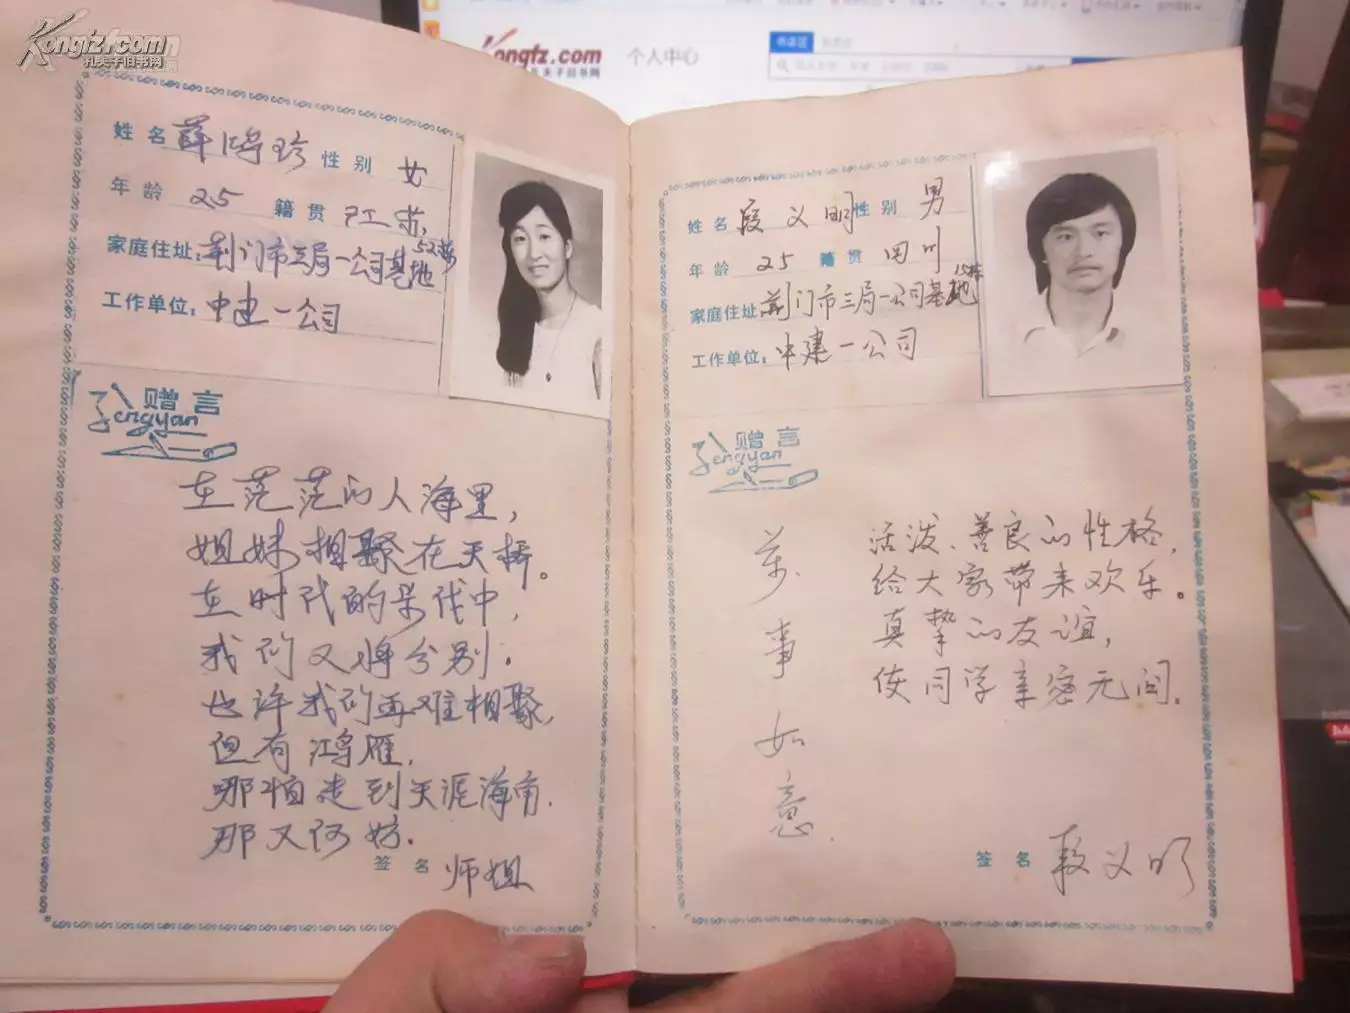 Kongfz.com
孔夫子旧书网
Kongfz.com
个人中心
姓名 薛鸿珍 性别 女
年龄 25 籍贯 江苏
家庭住址: 荆门市三局一公司基地52栋
工作单位: 中建一公司
赠言
Zengyan
在茫茫的人海里,
姐妹相聚在天桥。
在时代的呆伐中,
我们又将分别.
也许我们再难相聚,
但有鸿雁,
那怕走到天涯海南,
那又何妨.
签名 师姐
姓名 段义明 性别 男
年龄 25 籍贯 四川
家庭住址 荆门市三局一公司基地15栋
工作单位: 中建一公司
赠言
Zengyan
万事如意.
活泼、善良的性格,
给大家带来欢乐。
真挚的友谊,
使同学亲密无间.
签名 段义明